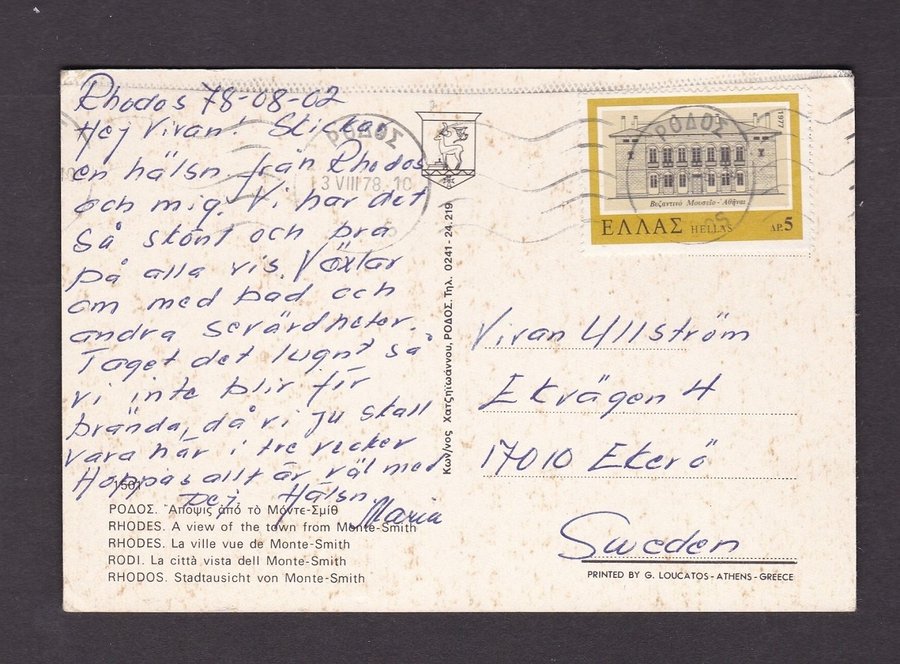 Rhodos 78-08-02
Hej Vivan! Skickar
en hälsn från Rhodos
och mig. Vi har det
så skönt och bra
på alla vis. Växlar
om med bad och
andra sevärdheter.
Taget det lugnt så
vi inte blir för
brända, då vi ju skall
vara här i tre veckor
Hoppas allt är väl med
Dej. Hälsn
Maria
1501
ΡΟΔΟΣ. Ἄποψις ἀπό τό Μόντε-Σμίθ
RHODES. A view of the town from Monte-Smith
RHODES. La ville vue de Monte-Smith
RODI. La città vista dell Monte-Smith
RHODOS. Stadtausicht von Monte-Smith
ΡΟΔΟΣ
3 VIII 78 - 10
Κων/νος Χατζηϊωάννου, ΡΟΔΟΣ. Τηλ. 0241-24.219
1977
ΡΟΔΟΣ
Βυζαντινό Μουσείο - Αθήναι
ΕΛΛΑΣ HELLAS ΔΡ. 5
Vivan Ullström
Ekvägen 4
17010 Ekerö
Sweden
PRINTED BY G. LOUCATOS - ATHENS - GREECE